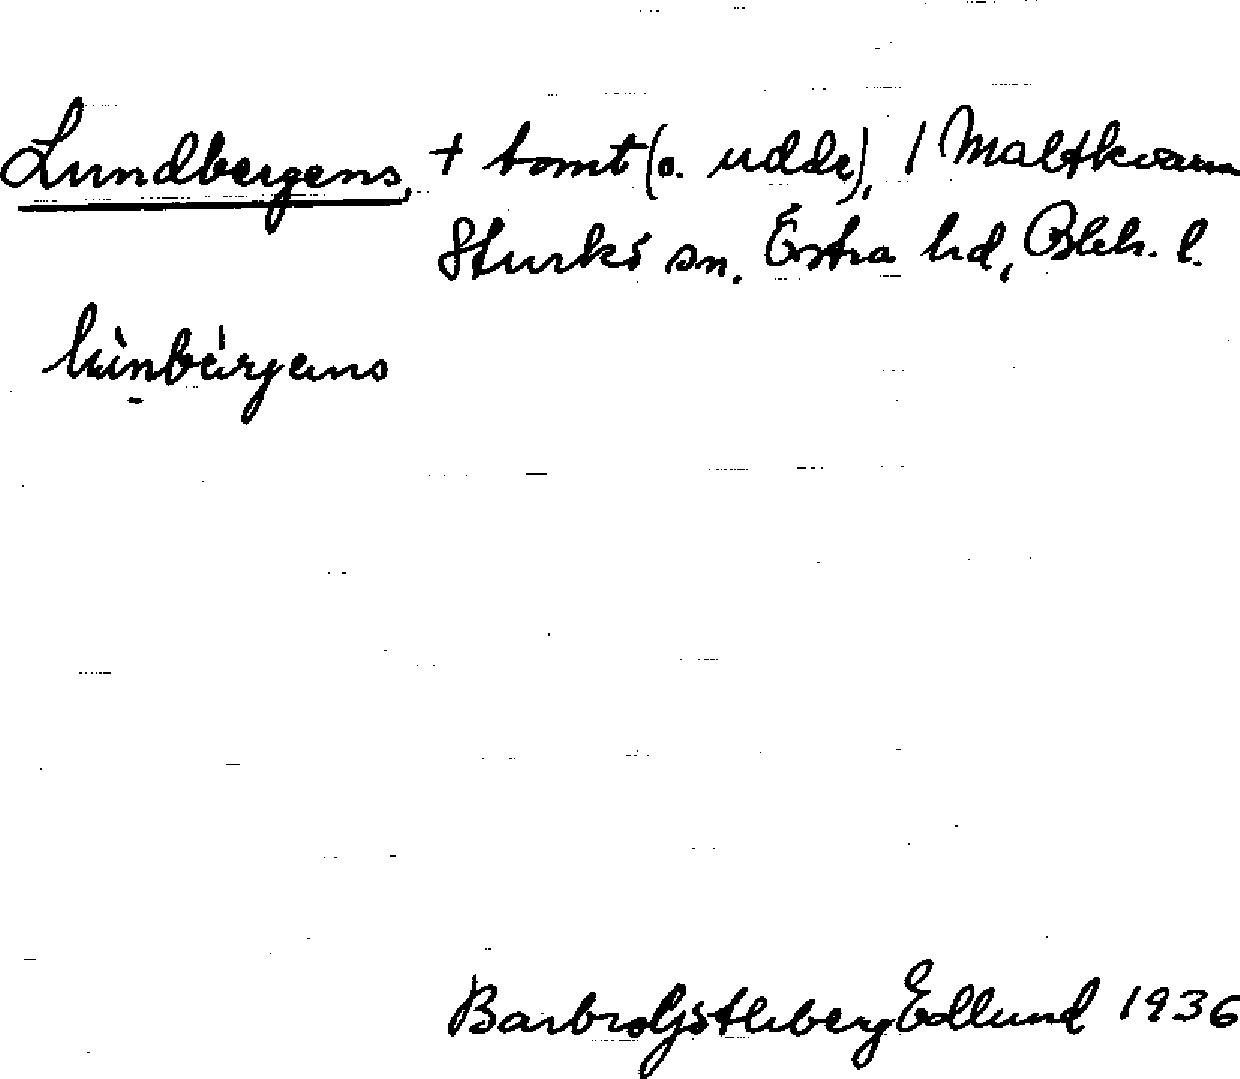 Lundbergens, + tomt (o. udde), / Maltkvarn
Sturkö sn. Östra hd, Blek. l.
lùnbárjens
Barbro Götlберg Edlund 1936